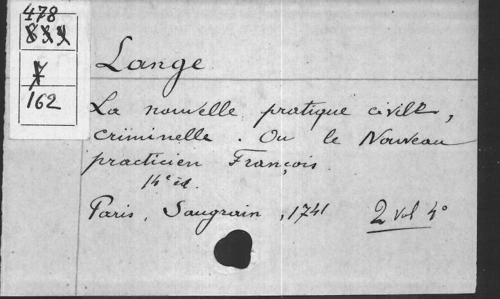 478
162
Lange
La nouvelle pratique civile,
criminelle. Ou le Nouveau
practicien François.
14e éd.
Paris, Saugrain, 1741 2 vol 4°